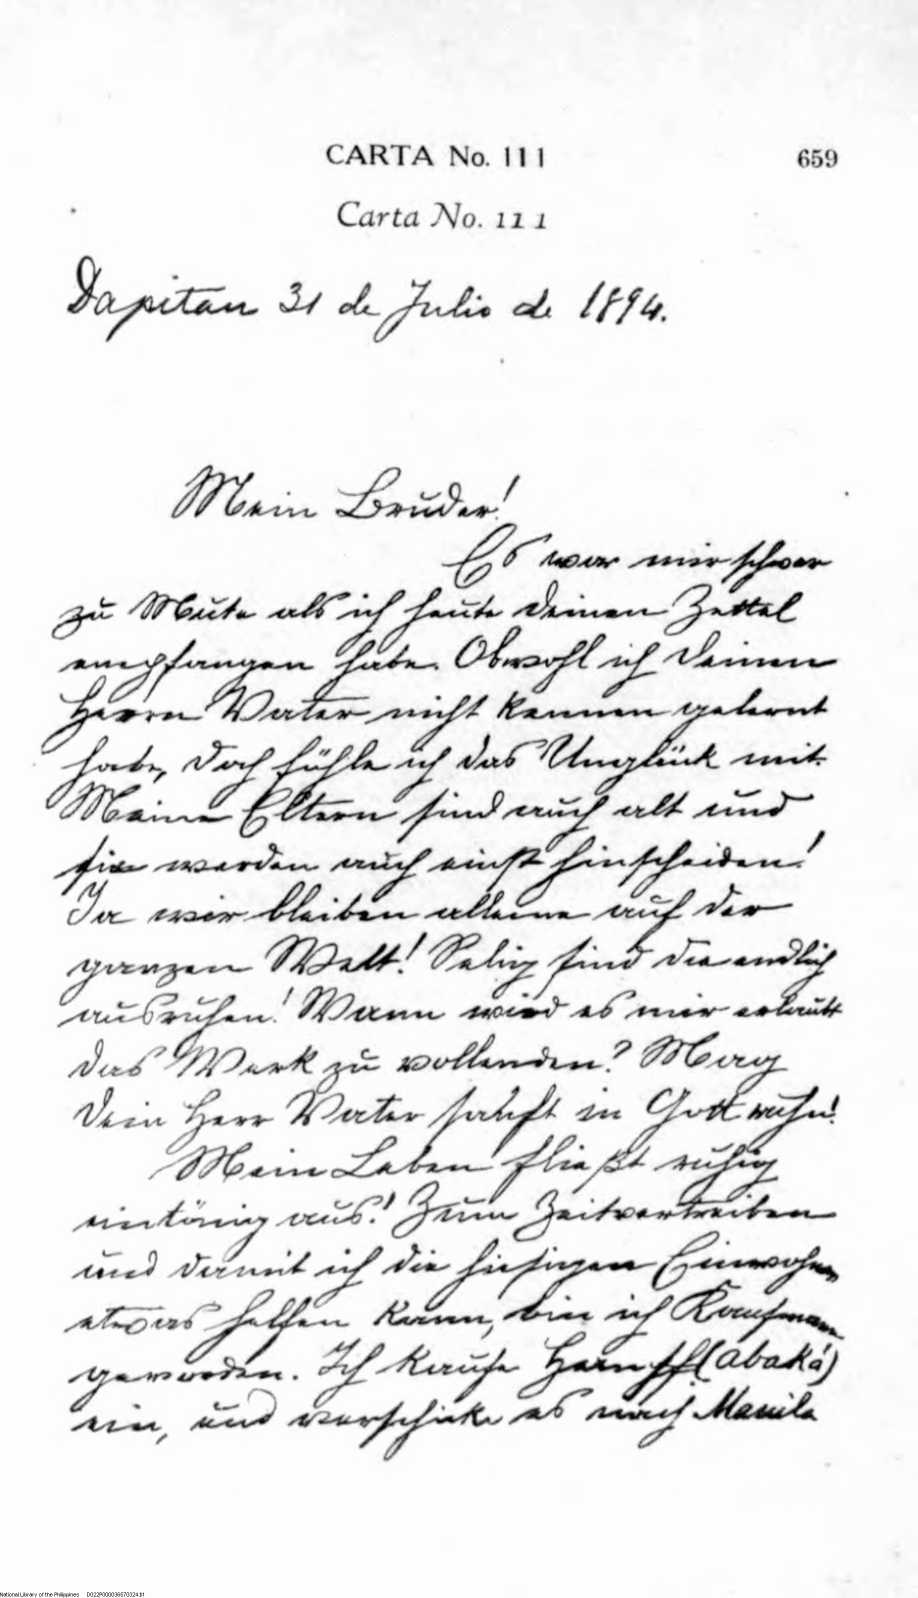 CARTA No. 111
659
Carta No. 111
Dapitan 31 de Julio de 1894.
Mein Bruder!
Es war mir schwer
zu Mute als ich heute deinen Zettel
empfangen habe. Obwohl ich deinen
Herrn Vater nicht kennen gelernt
habe, doch fühle ich das Unglück mit.
Meine Eltern sind auch alt und
sie werden auch einst hinscheiden!
Ja wir bleiben alleine auf der
ganzen Welt! Selig sind die endlich
ausruhen! Wann wird es mir erlaubt
das Werk zu vollenden? Mag
dein Herr Vater sanft in Gott ruhn!
Mein Leben fließt ruhig
eintönig aus! Zum Zeitvertreiben
und damit ich die hiesigen Einwohner
etwas helfen kann, bin ich Kaufmann
geworden. Ich kaufe Hanf (abaká)
ein, und verschicke es nach Manila
National Library of the Philippines